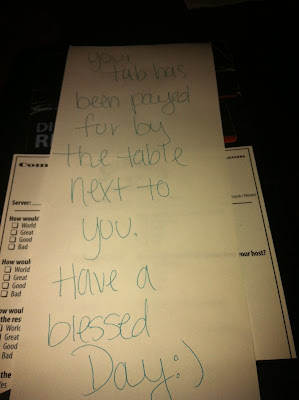 your
tab has
been payed
for by
the table
next to
you.
Have a
blessed
Day:)
Com
.com
Server:
your host?
How would
World
Great
Good
Bad
How would
World
Great
Good
Bad
How woul
the res
World
Great
Good
Bad
the
Yes